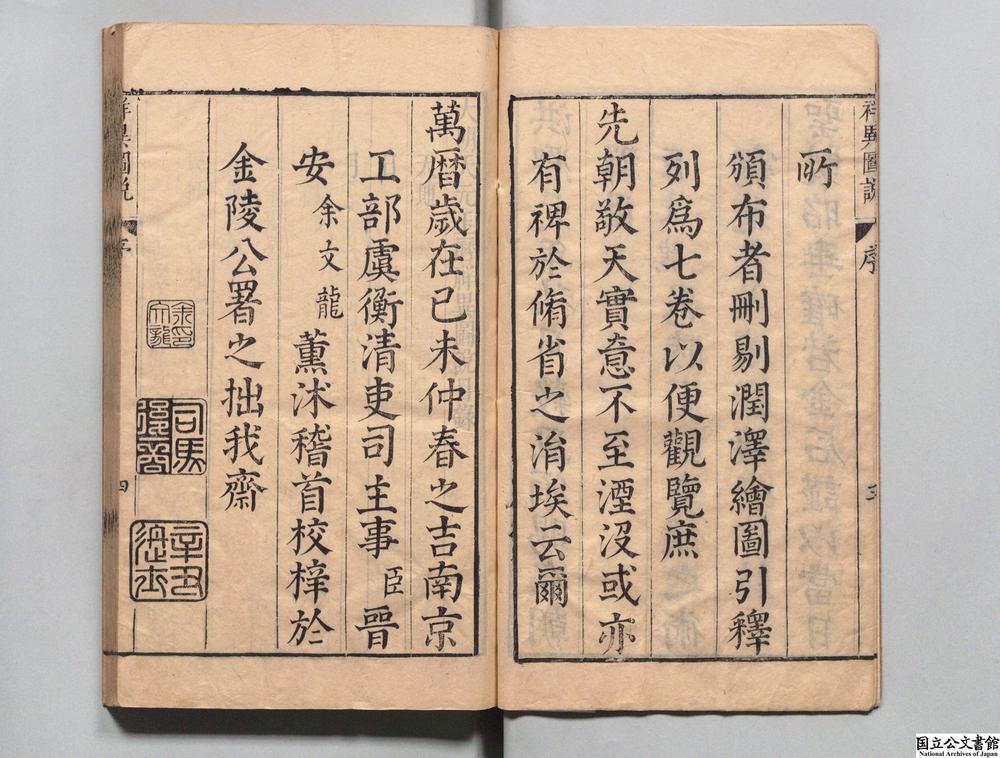 祥異圖說
序
所
頒布者刪剔潤澤繪圖引釋
列爲七卷以便觀覽庶
先朝敬天實意不至湮沒或亦
有裨於脩省之涓埃云爾
萬曆歲在己未仲春之吉南京
工部虞衡清吏司主事臣晉
安余文龍薰沐稽首校梓於
金陵公署之拙我齋
祥異圖說
序
四
余文龍印
司馬
国立公文書館
National Archives of Japan